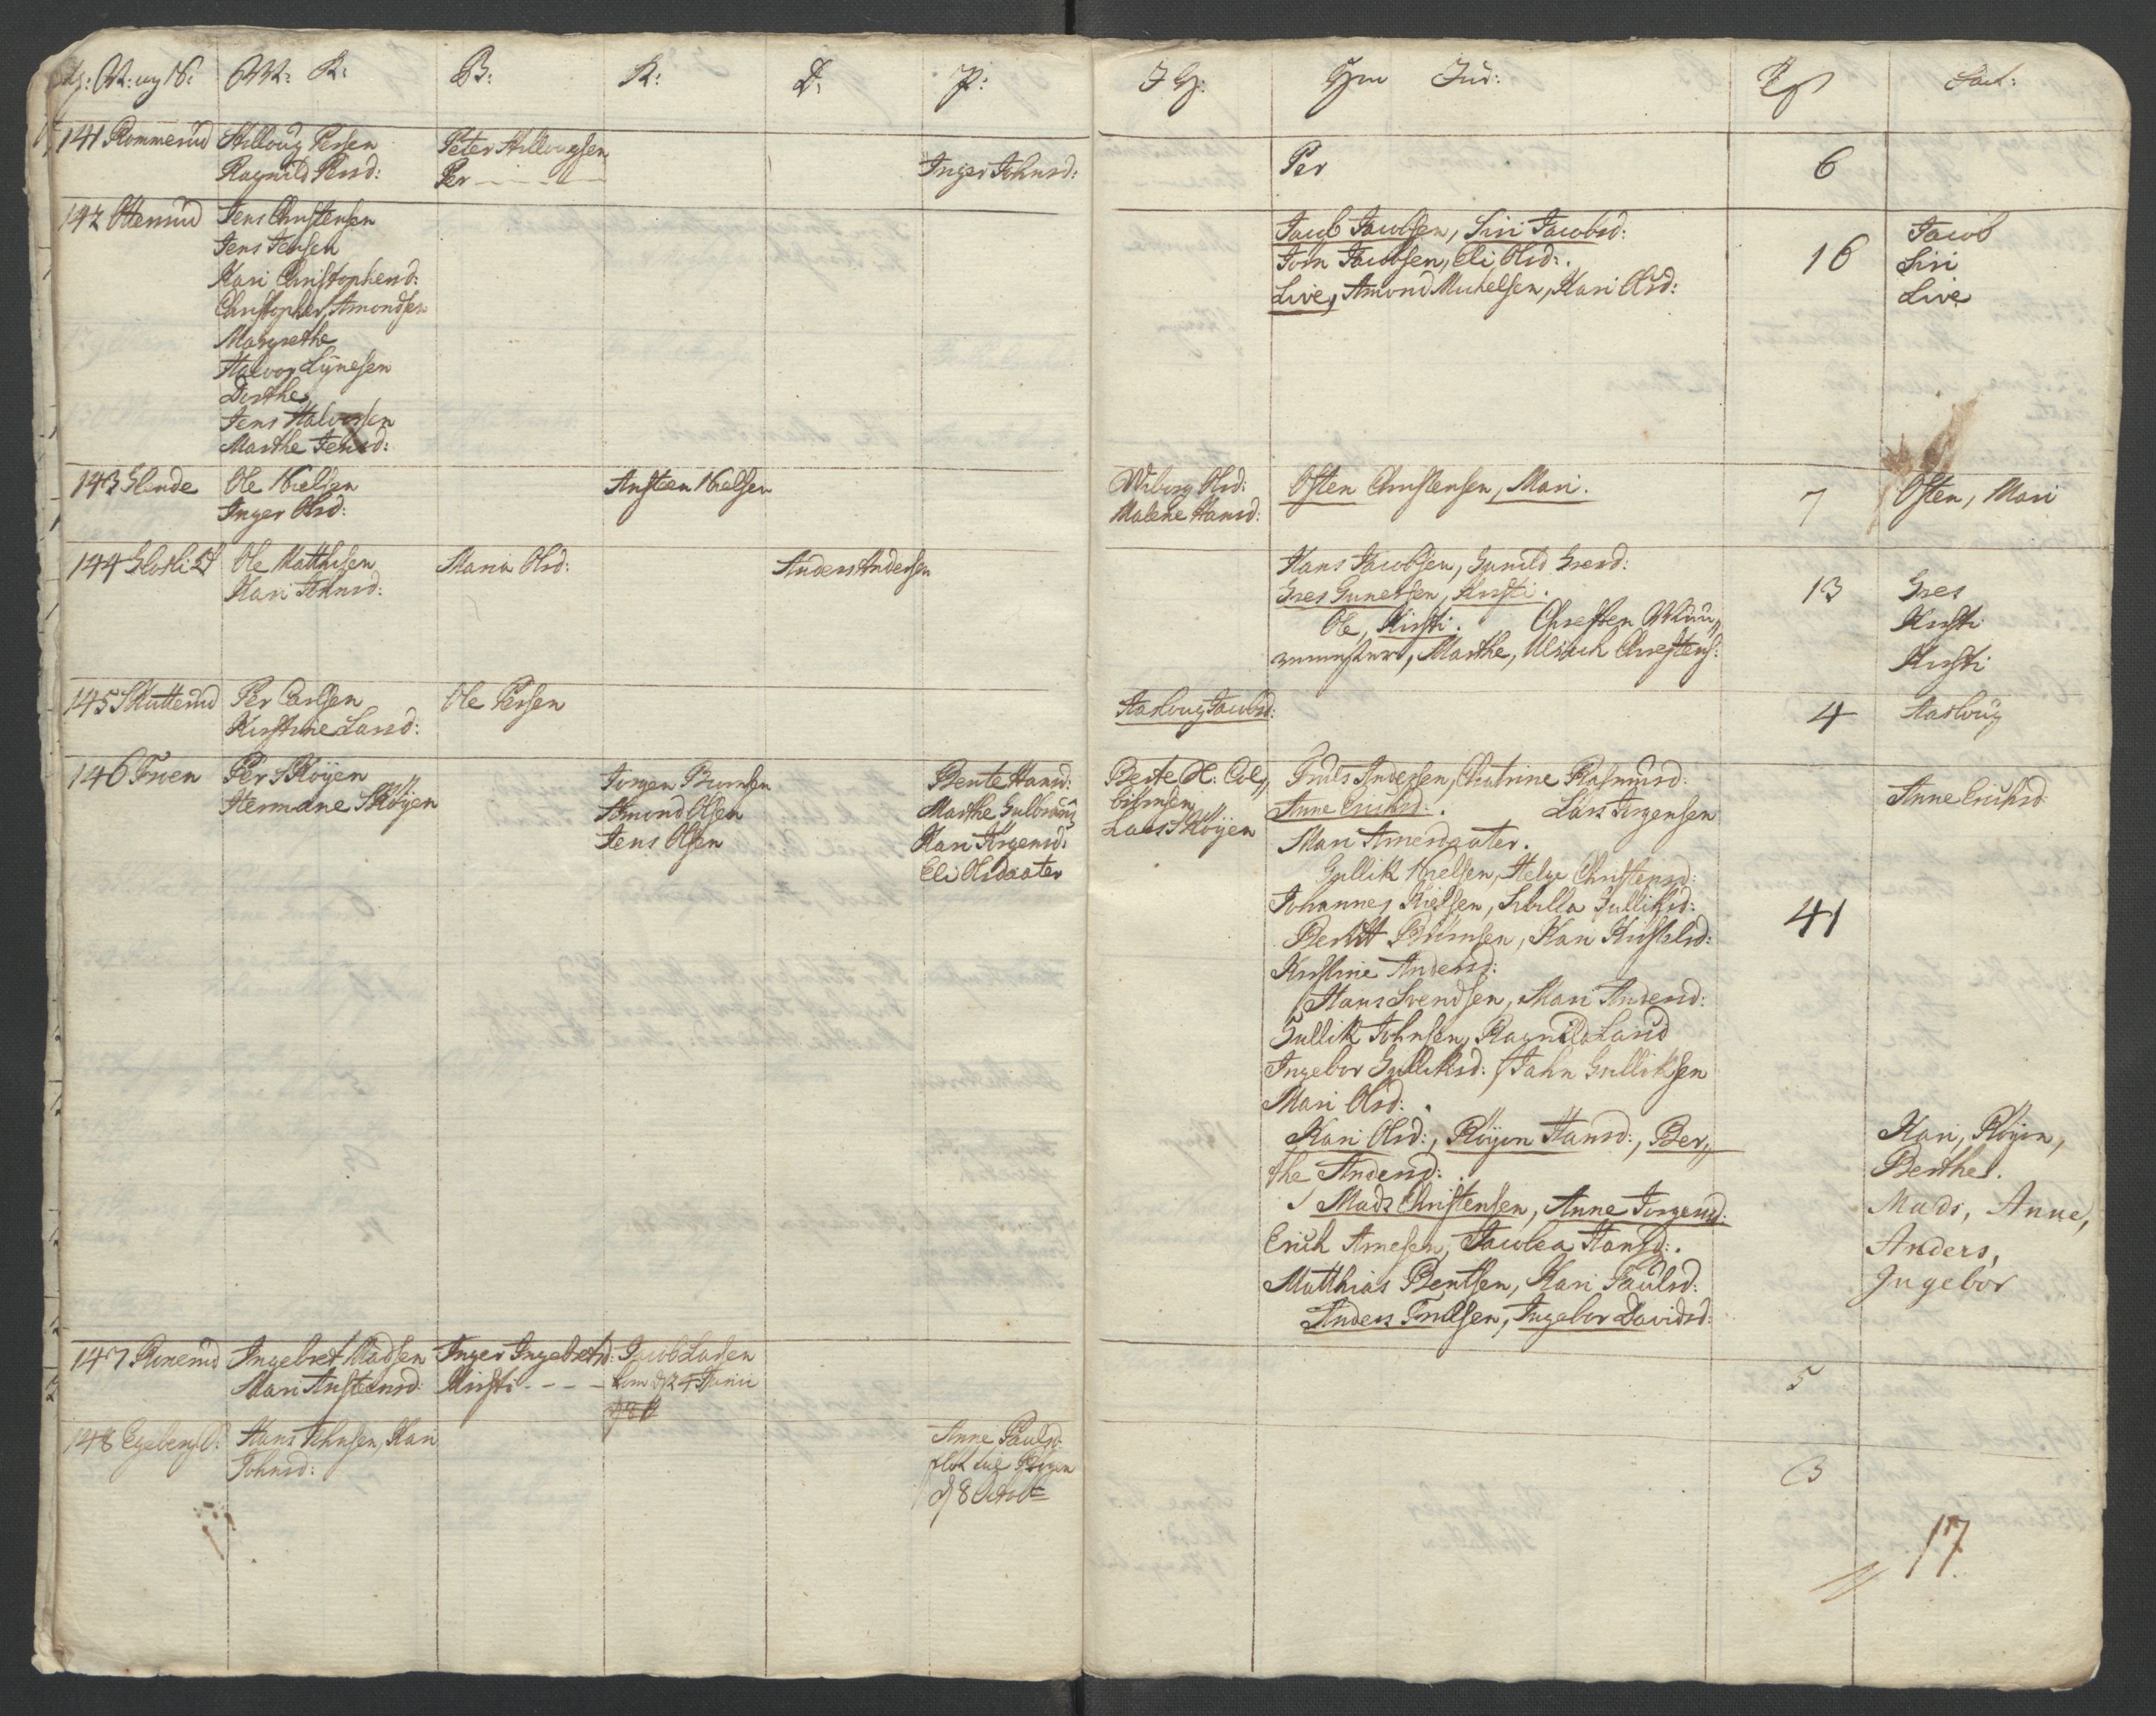 M: K:
B:
K:
D:
P:
J H:
Hm Ind:
Sad:
141 Rommerud
Hilloug Persen
Ragnild Persd:
Peter Hillougsen
Per
Inger Johnsd:
Per
6
142 Ottersrud
Jens Christensen
Jens Jensen
Kari Christophersd:
Christopher, Amondsen
Margrethe
Halvor Lynesen
Dorthe
Jens Halvorsen
Marthe Jensd:
Jacob Jacobsen, Siri Jacobsd:
John Jacobsen, Eli Olsd:.
Live, Amond Michelsen, Kari Olsd:
16
Jacob
Siri
Live
143 Glende
Ole Nielsen
Inger Olsd:
Ansteen Nielsen
Wiborg Olsd:
Malene Hansd:
Osten Christensen, Mari.
7
Osten, Mari
144 Glosli
Ole Matthisen
Kari Johnsd:
Maria Olsd:
Anders Andersen
Hans Jacobsen, Gunild Gresd:
Gres Gunersen, Kirsti.
Ole, Kirsti. Christen
Marthe, Ulrich Christens:
13
Gres
Kirsti
Kirsti
145 Skutterud
Per Carlsen
Kirstine Larsd:
Ole Persen
Aasloug Jacobsd:
4
Aasloug
146 Froen
Per Sköyen
Hermane Sköyen
Jorgen Biornsen
Amond Olsen
Jens Olsen
Bente Hansd:
Marthe Gulbrans
Kari Jörgensd:
Eli Olsdaater
Bente H: Col
biörnsen
Lars Sköyen
Truls Andersen, Chatrine Rasmusd:
Anne Erichsd:. Lars Jorgensen
Mari Arnesdaater.
Gullik Nielsen, Helge Christensd:
Johannes Nielsen, Sibilla Gulliksd:
Berthit Biörnsen, Kari Kirstelsd:
Kirstine Andersd:
Hans Svendsen, Mari Andersd:
Gullik Johnsen, Ragnild Larsd
Ingebor Gulliksd: John Gulliksen
Mari Olsd:.
Kari Olsd:, Röyen Hansd:, Ber
the Andersd:.
Mads Christensen, Anne Jorgensd:
Erich Arnesen, Jacobea Hansd:.
Matthias Bentsen, Kari Paulsd:
Anders Trulsen, Ingebor Davidsd:
41
Anne Erichsd
Kari, Röyen,
Berthe.
Mads, Anne,
Anders,
Ingebor
147 Ronerud
Ingebret Madsen
Mari Anstensd:
Inger Ingebretsd:
Kirsti - - - -
Jacob Larsen
kom d 24 Junii
5
148 Egeberg
Hans Johnsen, Kari
Johnsd:
Anne Paulsd
d 8 Octob
3
17